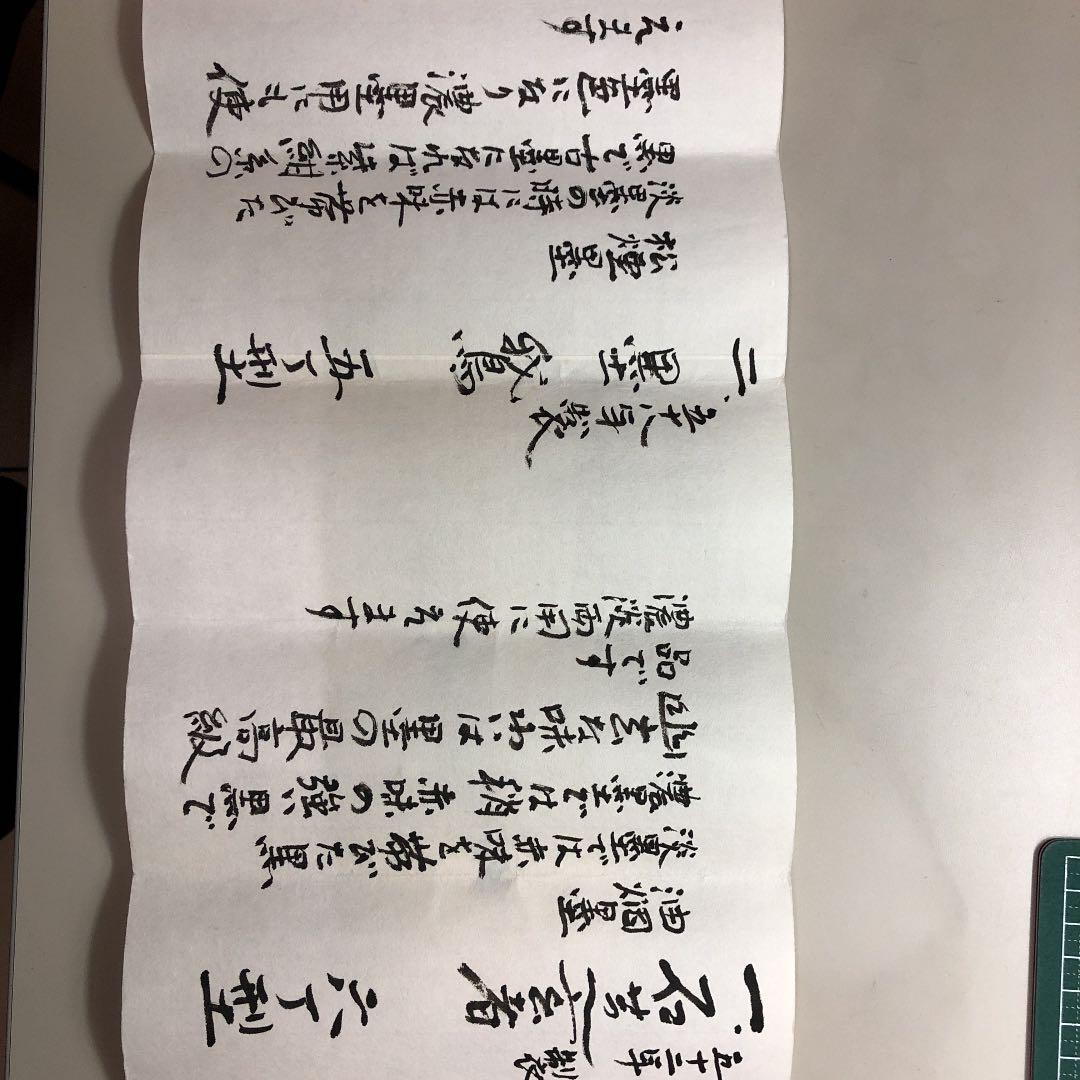 五十二年製
一、石 六丁型
油烟墨
淡墨では赤味を帯びた黒、
濃墨では稍赤味の強い黒で
幽玄な味わいは墨の最高級
品です
濃淡両用に使えます
五十八年製
二、墨鵞 五丁型
松煙墨
淡墨の時には赤味を帯びた
黒で古墨になれば紫紺系の
墨色になり濃墨用にも使
えます